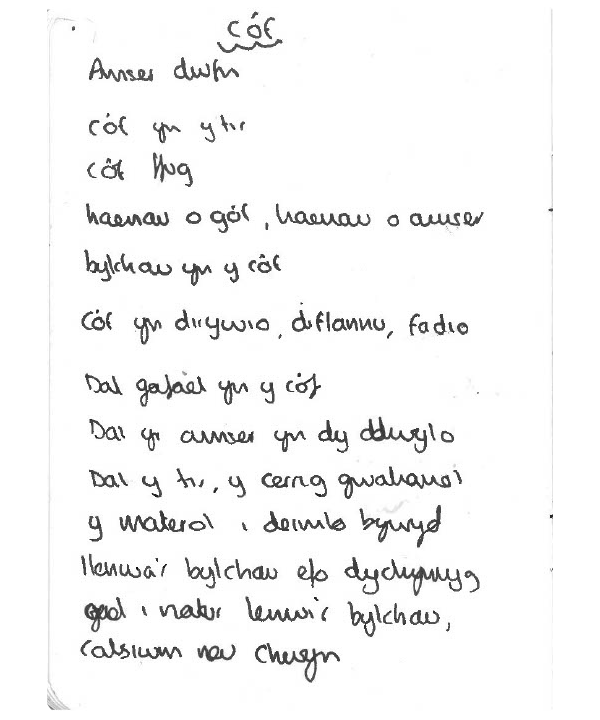 Cóf
Amser dwfn
Cóf yn y tir
Côf ffug
haenau o góf, haenau o amser
bylchau yn y côf
Cóf yn dirywio, diflannu, fadio
Dal gafael yn y cóf
Dal yr amser yn dy ddwylo
Dal y tir, y cerrig gwahanol
y materol i deimlo bywyd
llenwa'r bylchau efo dychymyg
gad i natur lenwi'r bylchau,
Calsium neu chwyn